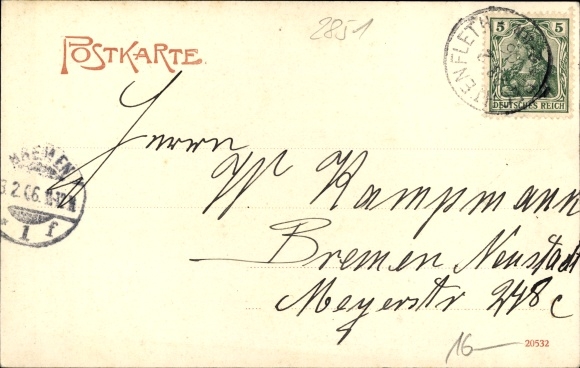 2851
POSTKARTE.
5 5
DEUTSCHES REICH
BREMEN
2.06. 11-12
* 1 f
Herrn
W. Kampmann
Bremen Neustadt
Meyerstr 248 c
16
20532